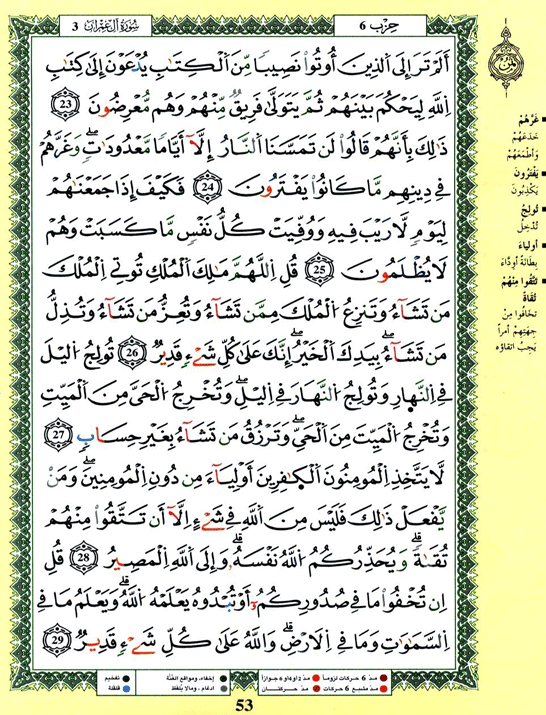 حِزْب 6
سُورَةُ آلِ عِمْرَانَ 3
أَلَمْ تَرَ إِلَى اَلذِينَ أُوتُواْ نَصِيباً مِّنَ اَلْكِتَٰبِ يُدْعَوْنَ إِلَىٰ كِتَٰبِ
اِللَّهِ لِيَحْكُمَ بَيْنَهُمْ ثُمَّ يَتَوَلَّىٰ فَرِيقٌ مِّنْهُمْ وَهُم مُّعْرِضُونَ 23
ذَٰلِكَ بِأَنَّهُمْ قَالُواْ لَن تَمَسَّنَا اَلنَّارُ إِلَّآ أَيَّاماً مَّعْدُودَٰتٍۖ وَغَرَّهُمْ
فِے دِينِهِم مَّا كَانُواْ يَفْتَرُونَ 24 فَكَيْفَ إِذَا جَمَعْنَٰهُمْ
لِيَوْمٍ لَّا رَيْبَ فِيهِ وَوُفِّيَتْ كُلُّ نَفْسٍ مَّا كَسَبَتْ وَهُمْ
لَا يُظْلَمُونَ 25 قُلِ اِللَّهُمَّ مَٰلِكَ اَلْمُلْكِ تُوتِے اِلْمُلْكَ
مَن تَشَآءُ وَتَنزِعُ اُلْمُلْكَ مِمَّن تَشَآءُ وَتُعِزُّ مَن تَشَآءُ وَتُذِلُّ
مَن تَشَآءُۖ بِيَدِكَ اَلْخَيْرُۖ إِنَّكَ عَلَىٰ كُلِّ شَےْءٍ قَدِيرٌ 26 تُولِجُ اُليْلَ
فِے اِلنَّهارِ وَتُولِجُ اُلنَّهَارَ فِے اِليْلِۖ وَتُخْرِجُ اُلْحَيَّ مِنَ اَلْمَيِّتِ
وَتُخْرِجُ اُلْمَيِّتَ مِنَ اَلْحَيِّۖ وَتَرْزُقُ مَن تَشَآءُ بِغَيْرِ حِسَابٍ 27
لَّا يَتَّخِذِ اِلْمُومِنُونَ اَلْكٰ۪فِرِينَ أَوْلِيَآءَ مِن دُونِ اِلْمُومِنِينَۖ وَمَنْ
يَّفْعَلْ ذَٰلِكَ فَلَيْسَ مِنَ اَللَّهِ فِے شَےْءٍ اِلَّآ أَن تَتَّقُواْ مِنْهُمْ
تُقَىٰةًۖ وَيُحَذِّرُكُمُ اُللَّهُ نَفْسَهُۥۖ وَإِلَى اَللَّهِ اِلْمَصِيرُ 28 قُلِ
اِن تُخْفُواْ مَا فِے صُدُورِكُمُۥٓ أَوْ تُبْدُوهُ يَعْلَمْهُ اُللَّهُۖ وَيَعْلَمُ مَا فِے
اِلسَّمَٰوَٰتِ وَمَا فِے اِلَارْضِۖ وَاللَّهُ عَلَىٰ كُلِّ شَےْءٍ قَدِيرٌ 29
غَرَّهُمْ
خَدَعَهُمْ
وَأطْمَعَهُمْ
يَفْتَرُونَ
يَكْذِبُونَ
تُولِجُ
تُدْخِلُ
أولياءَ
بِطَانَةً أودَّاءَ
تَتَّقُوا مِنْهُمْ
تُقَاةً
تخافُوا مِنْ
جِهَتِهِمْ أمراً
يَجِبُ اتقاؤه
مدّ 6 حركات لزوماً مدّ 2 أو 4 أو 6 جوازاً إخفاء، ومواقع الغُنَّة تفخيم
مدّ مشبع 6 حركات مدّ حركتان إدغام، وما لا يُلفَظ قلقلة
53